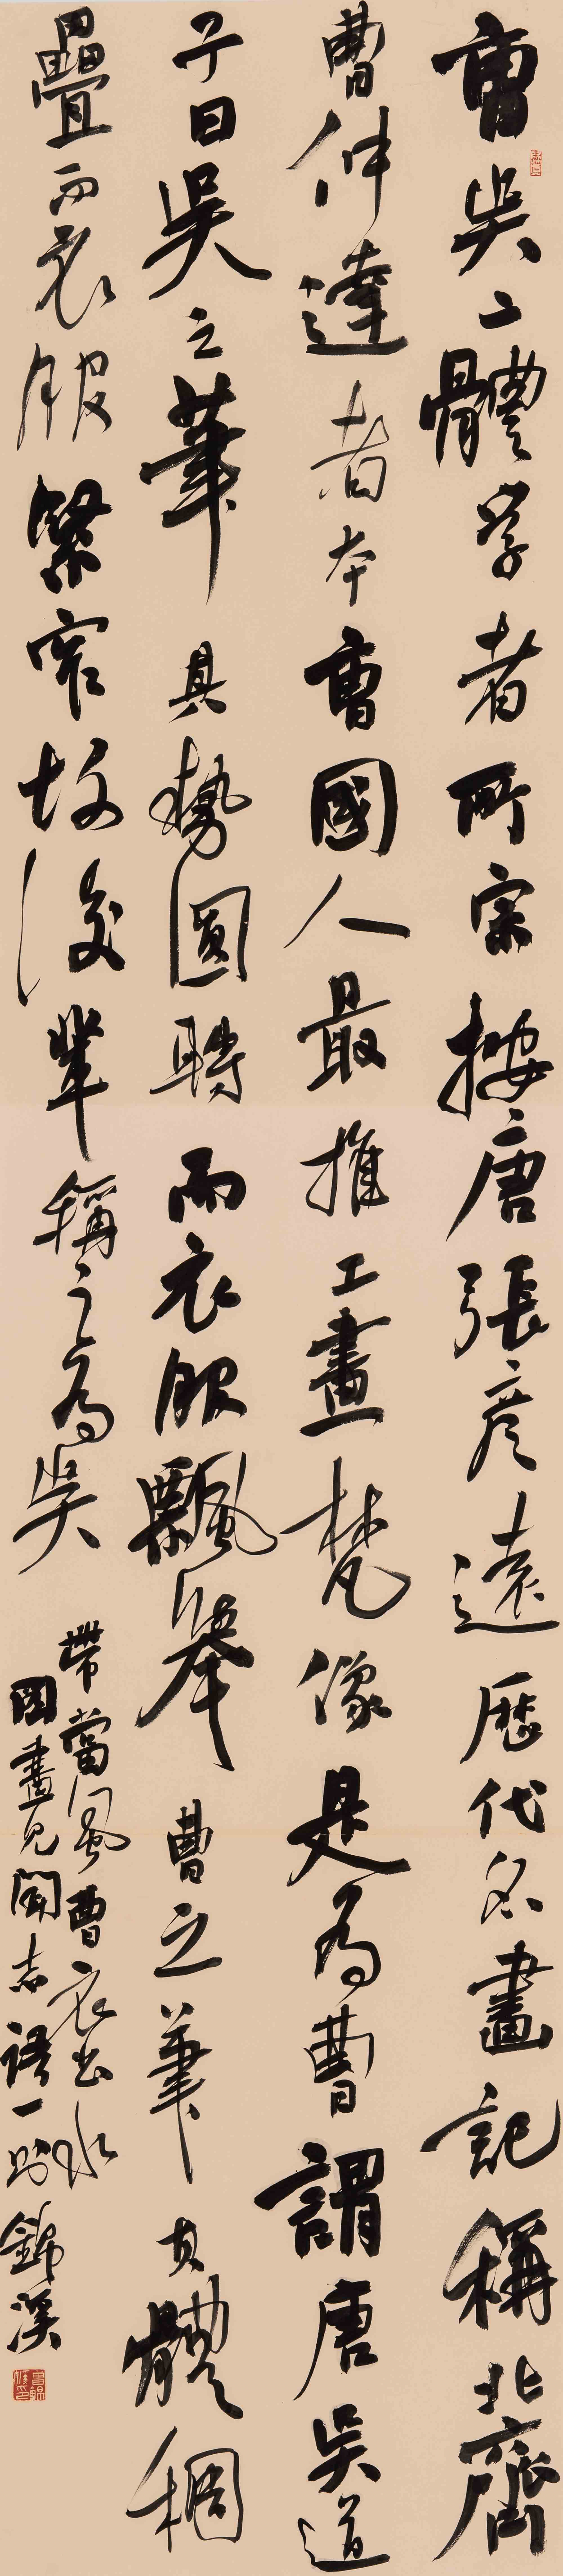 曹吳二體学者所宗按唐張彦遠歷代名畫記稱北齊
曹仲達者本曹國人最推工畫梵像是為曹謂唐吳道
子曰吳之筆其勢圓轉而衣服飄舉曹之筆其體稠
疊而衣服緊窄故後輩稱之為吳
帶當風曹衣出水
図畫見聞志語一則錦溪